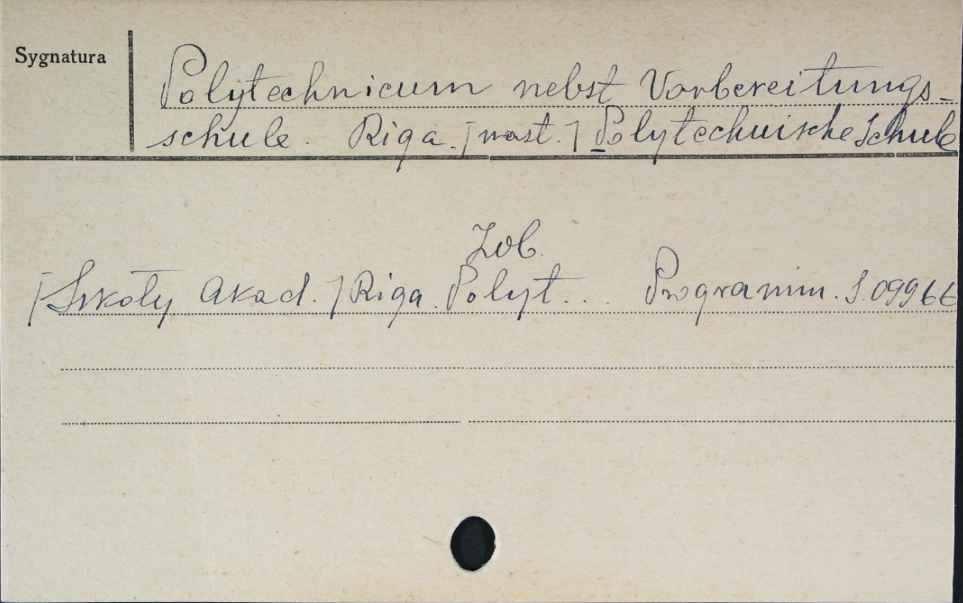 Sygnatura
Polytechnicum nebst Vorbereitungs-
schule. Riga. [nast.] Polytechnische Schule
Zob.
[Szkoły Akad.] Riga. Polyt... Programm. S.09966